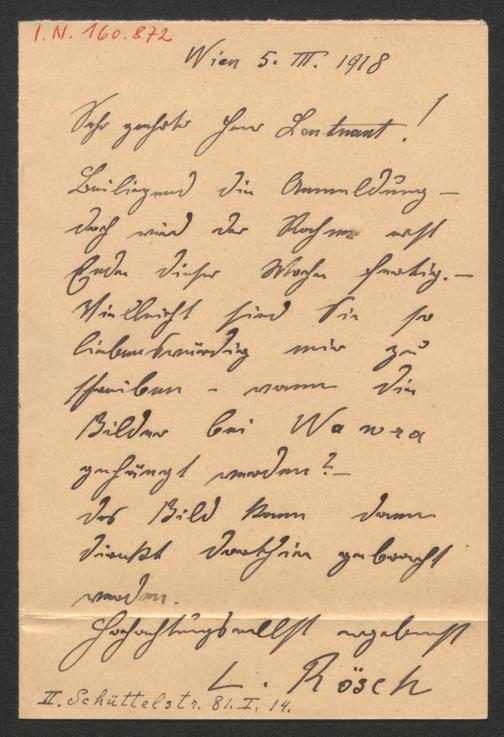 I.N. 160.872
Wien 5. III. 1918
Sehr geehrter Herr Leutnant!
Beiliegend die Anmeldung –
doch wird der Rahmen erst
Ende dieser Woche fertig. –
Vielleicht sind Sie so
liebenswürdig mir zu
schreiben – wann die
Bilder bei Wawra
gehängt werden? –
das Bild kann dann
direkt dorthin gebracht
werden.
Hochachtungsvollst ergebenst
L. Rösch
II. Schüttelstr. 81. I. 14.